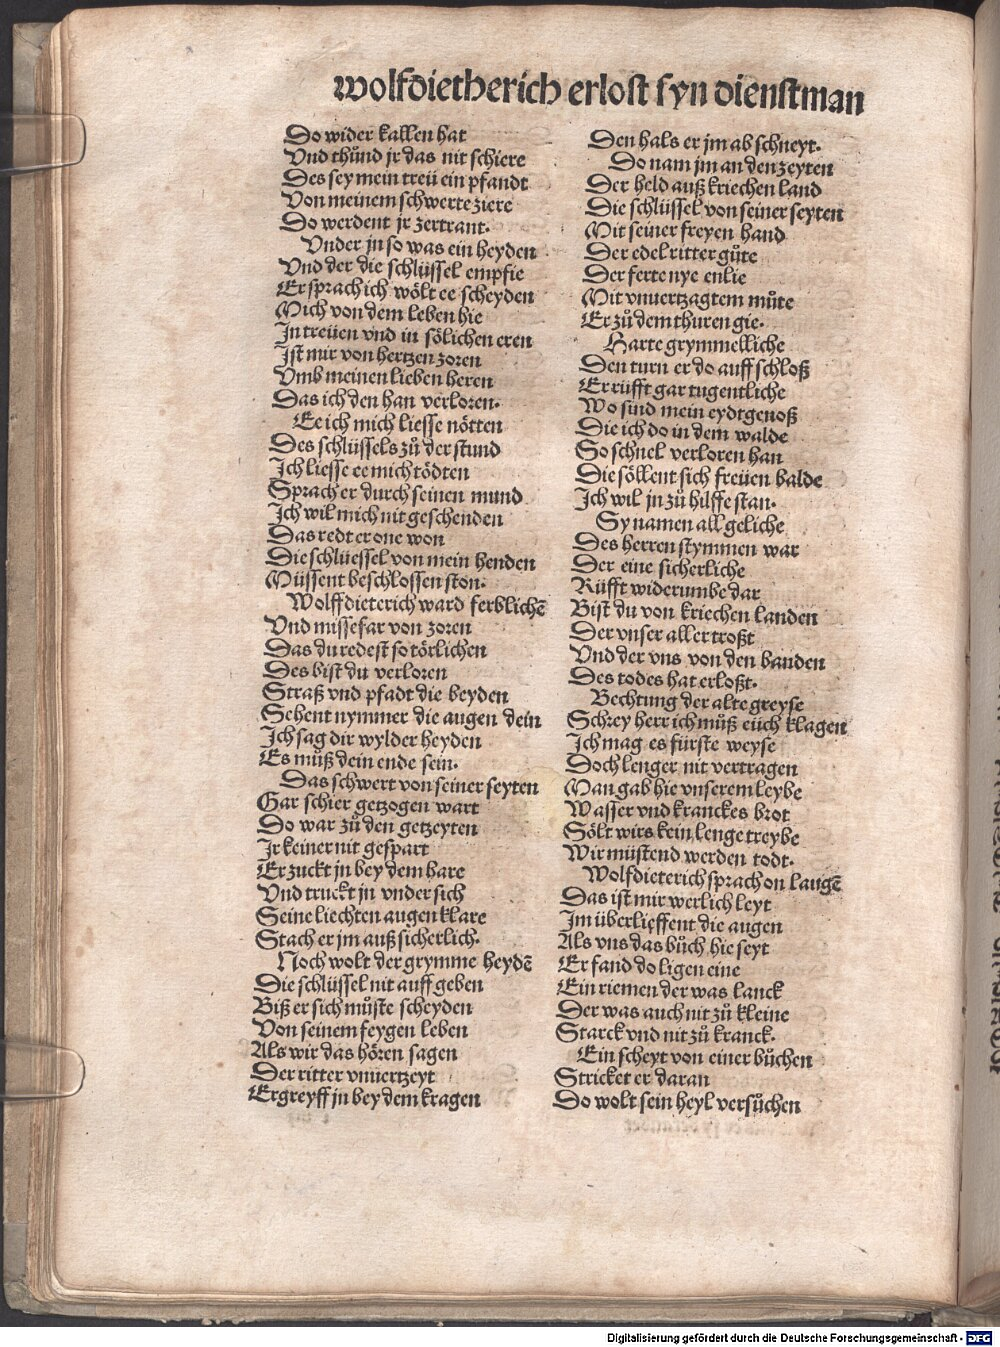 wolfdietherich erlost syn dienstman
Do wider kallen hat
Vnd thůnd jr das nit schiere
Des sey mein treü ein pfandt
Von meinem schwerte ziere
Do werdent jr zertrant.
Vnder jn so was ein heyden
Vnd der die schlüssel empfie
Er sprach ich wölt ee scheyden
Mich von dem leben hie
In treüen vnd in sölichen eren
Ist mir von hertzen zoren
Vmb meinen lieben heren
Das ich den han verloren.
Ee ich mich liesse nötten
Des schlüssels zů der stund
Ich liesse ee mich tödten
Sprach er durch seinen mund
Ich wil mich nit geschenden
Das redt er one won
Die schlüessel von mein henden
Müssent beschlossen ston.
Wolffdieterich ward ferblichē
Vnd missefar von zoren
Das du redest so törlichen
Des bist du verloren
Straß vnd pfadt die beyden
Sehent nymmer die augen dein
Ich sag dir wylder heyden
Es můß dein ende sein.
Das schwert von seiner seyten
Gar schier getzogen wart
Do war zů den getzeyten
Ir keiner nit gespart
Er zuckt jn bey dem hare
Vnd truckt jn vnder sich
Seine liechten augen klare
Stach er jm auß sicherlich.
Noch wolt der grymme heydē
Die schlüssel nit auff geben
Biß er sich můste scheyden
Von seinem feygen leben
Als wir das hören sagen
Der ritter vnuertzeyt
Ergreyff jn bey dem kragen
Den hals er jm ab schneyt.
Do nam jm an den zeyten
Der held auß kriechen land
Die schlüssel von seiner seyten
Mit seiner freyen hand
Der edel ritter gůte
Der ferte nye enlie
Mit vnuertzagtem můte
Er zů dem thuren gie.
Harte grymmelliche
Den turn er do auff schloß
Er rüfft gar tugentliche
Wo sind mein eydtgenoß
Die ich do in dem walde
So schnel verloren han
Die söllent sich freüen balde
Ich wil jn zů hilffe stan.
Sy namen all geliche
Des herren stymmen war
Der eine sicherliche
Rüfft widerumbe dar
Bist du von kriechen landen
Der vnser aller troßt
Vnd der vns von den banden
Des todes hat erloßt.
Bechtung der alte greyse
Schrey herr ich můß eüch klagen
Ich mag es fürste weyse
Doch lenger nit vertragen
Man gab hie vnserem leybe
Wasser vnd kranckes brot
Sölt wirs kein lenge treybe
Wir müstend werden todt.
Wolfdieterich sprach on laugē
Das ist mir werlich leyt
Im überlieffent die augen
Als vns das bůch hie seyt
Er fand do ligen eine
Ein riemen der was lanck
Der was auch nit zů kleine
Starck vnd nit zů kranck.
Ein scheyt von einer bůchen
Stricket er daran
Do wolt sein heyl versůchen
Digitalisierung gefördert durch die Deutsche Forschungsgemeinschaft - DFG